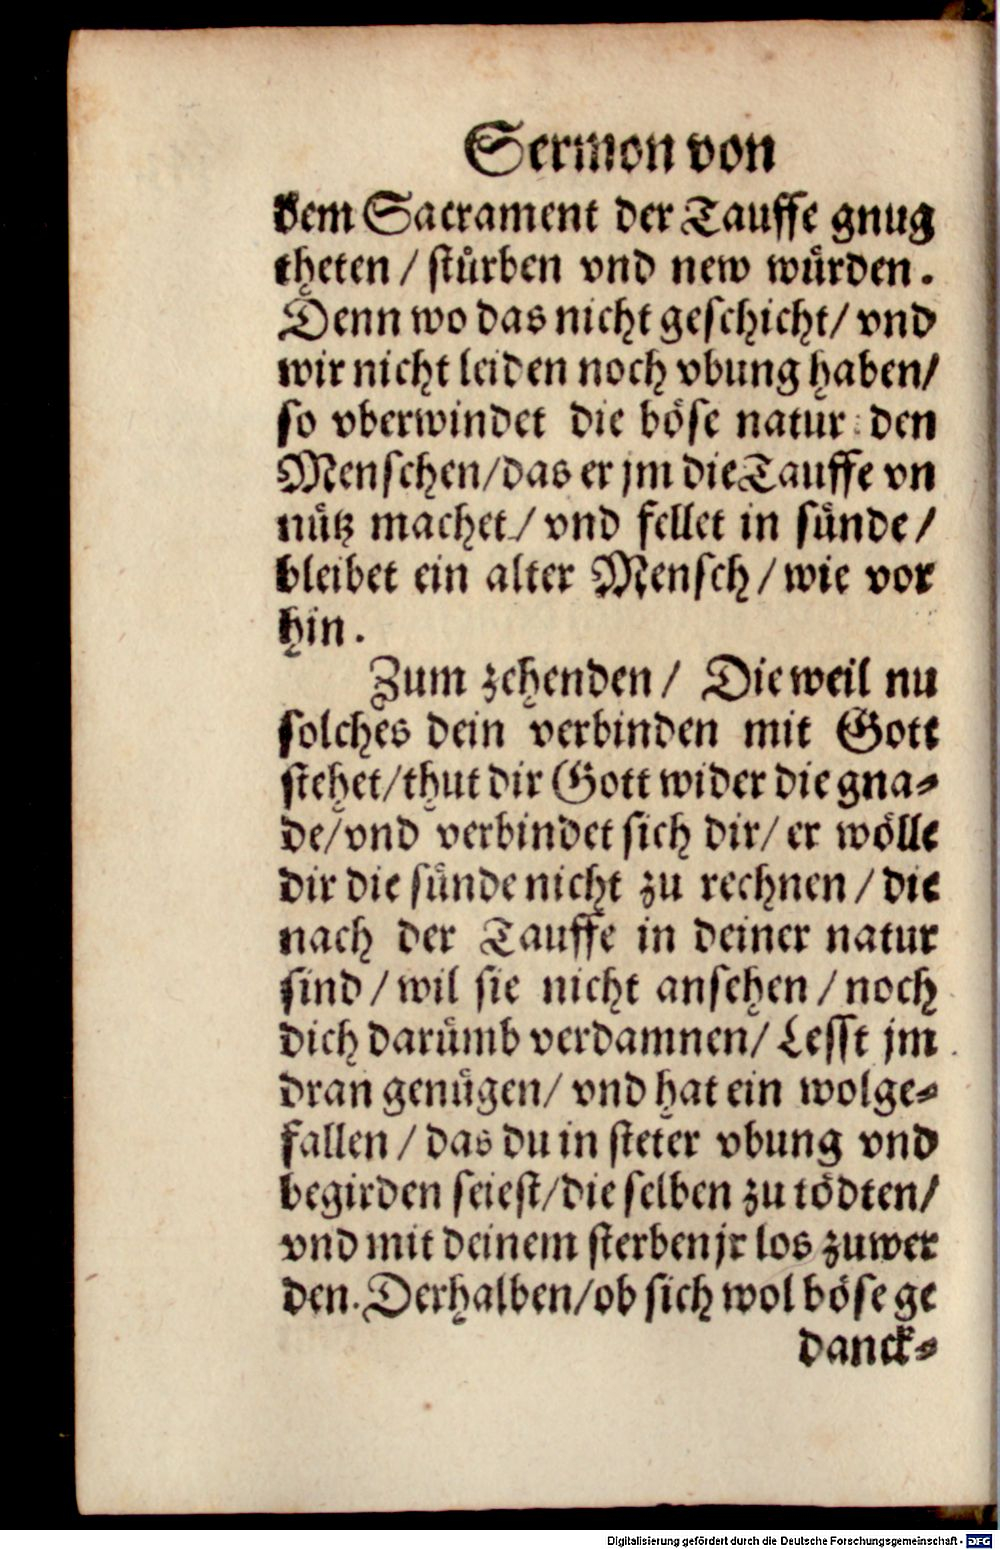 Sermon von
dem Sacrament der Tauffe gnug
theten / stürben vnd new würden.
Denn wo das nicht geschicht / vnd
wir nicht leiden noch vbung haben /
so vberwindet die böse natur den
Menschen / das er jm die Tauffe vn
nütz machet / vnd fellet in sünde /
bleibet ein alter Mensch / wie vor
hin.
Zum zehenden / Die weil nu
solches dein verbinden mit Gott
stehet / thut dir Gott wider die gna-
de / vnd verbindet sich dir / er wölle
dir die sünde nicht zu rechnen / die
nach der Tauffe in deiner natur
sind / wil sie nicht ansehen / noch
dich darümb verdamnen / Lesst jm
dran genügen / vnd hat ein wolge-
fallen / das du in steter vbung vnd
begirden seiest / die selben zu tödten /
vnd mit deinem sterben jr los zuwer
den. Derhalben / ob sich wol böse ge
danck-
Digitalisierung gefördert durch die Deutsche Forschungsgemeinschaft - DFG